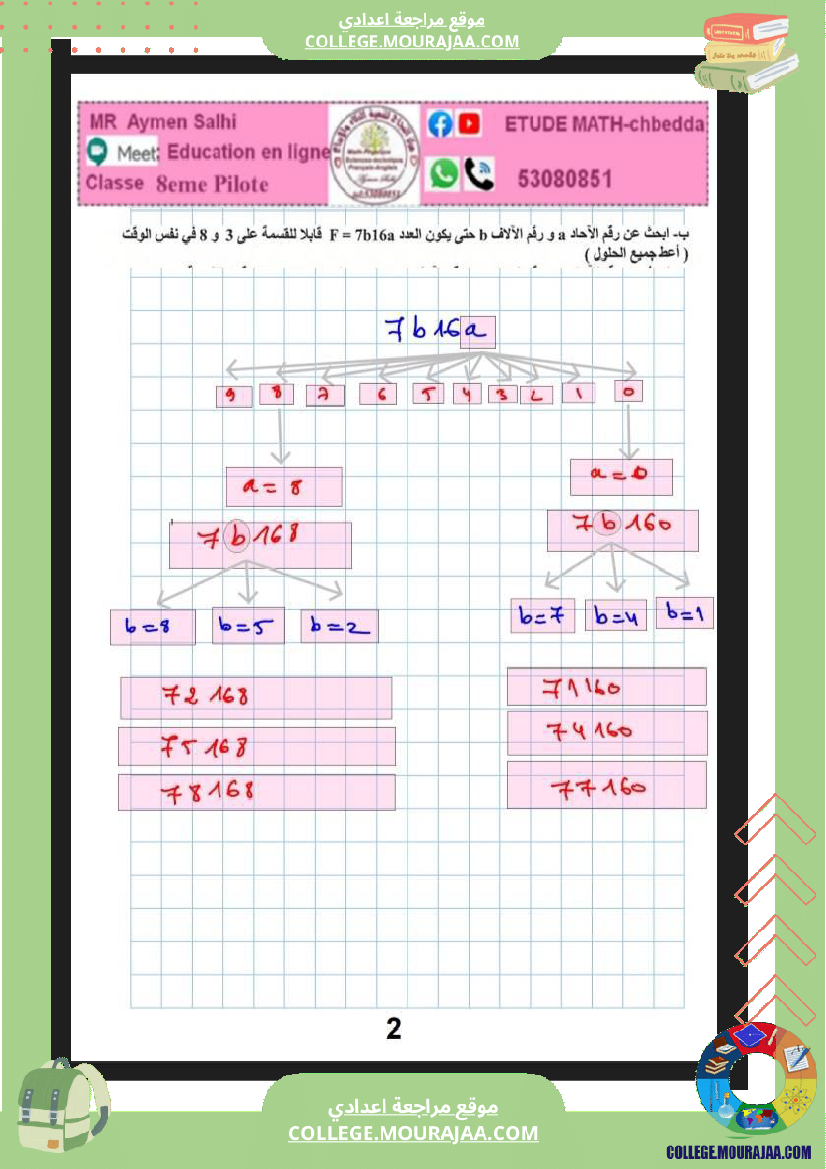 موقع مراجعة اعدادي
COLLEGE.MOURAJAA.COM
MR Aymen Salhi
Meet: Education en ligne
Classe 8eme Pilote
ETUDE MATH-chbedda
53080851
ب- ابحث عن رقم الآحاد a و رقم الآلاف b حتى يكون العدد F = 7b16a قابلا للقسمة على 3 و 8 في نفس الوقت
( أعط جميع الحلول )
7b16a
9 8 7 6 5 4 3 2 1 0
a = 8 a = 0
7b168 7b160
b = 8 b = 5 b = 2 b = 7 b = 4 b = 1
72168 71160
75168 74160
78168 77160
2
موقع مراجعة اعدادي
COLLEGE.MOURAJAA.COM
COLLEGE.MOURAJAA.COM